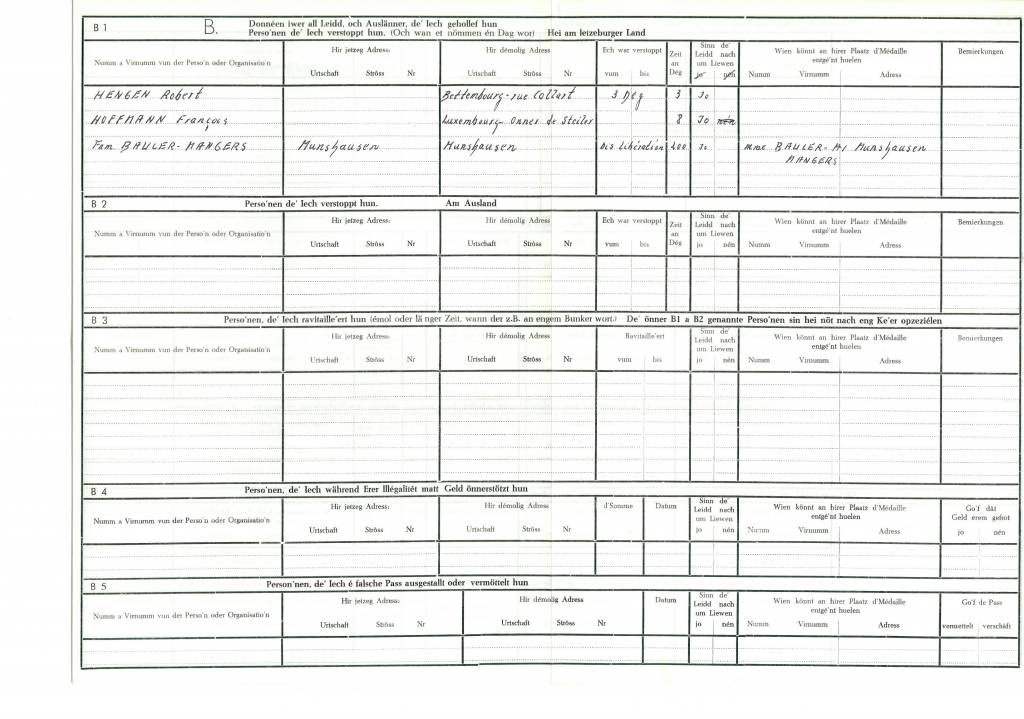 B 1 B. Donnéen iwer all Leidd, och Auslänner, de' Iech gehollef hun
Perso'nen de' Iech verstoppt hun. (Och wan et nömmen én Dag wor) Hei am letzeburger Land
Numm a Virnumm vun der Perso'n oder Organisatio'n
Hir jetzeg Adress:
Urtschaft Ströss Nr
Hir démolig Adress:
Urtschaft Ströss Nr
Ech war verstoppt
vum bis
Zeit
an
Dég
Sinn de'
Leidd nach
um Liewen
jo nén
Wien könnt an hirer Plaatz d'Médaille
entgé'nt huelen
Numm Virnumm Adress
Bemierkungen
HENGEN Robert Bettembourg-rue Collart 3 Dég 3 Jo
HOFFMANN François Luxembourg- Onner de Steiler 8 Jo nén
Fam BAULER-MANGERS Munshausen Munshausen bis Libération 200 Jo mme BAULER- Munshausen
MANGERS
B 2 Perso'nen de' Iech verstoppt hun. Am Ausland
Numm a Virnumm vun der Perso'n oder Organisatio'n
Hir jetzeg Adress:
Urtschaft Ströss Nr
Hir démolig Adress
Urtschaft Ströss Nr
Ech war verstoppt
vum bis
Zeit
an
Dég
Sinn de'
Leidd nach
um Liewen
jo nén
Wien könnt an hirer Plaatz d'Médaille
entgé'nt huelen
Numm Virnumm Adress
Bemierkungen
B 3 Perso'nen, de' Iech ravitaille'ert hun (émol oder länger Zeit, wann der z.B. an engem Bunker wort.) De' önner B1 a B2 genannte Perso'nen sin hei nöt nach eng Ke'er opzeziélen
Numm a Virnumm vun der Perso'n oder Organisatio'n
Hir jetzeg Adress:
Urtschaft Ströss Nr
Hir démolig Adress
Urtschaft Ströss Nr
Ravitaille'ert
vum bis
Sinn de'
Leidd nach
um Liewen
jo nén
Wien könnt an hirer Plaatz d'Médaille
entgé'nt huelen
Numm Virnumm Adress
Bemierkungen
B 4 Perso'nen, de' Iech während Erer Illégalitét matt Geld önnerstötzt hun
Numm a Virnumm vun der Perso'n oder Organisatio'n
Hir jetzeg Adress:
Urtschaft Ströss Nr
Hir démolig Adress
Urtschaft Ströss Nr
d'Somme
Datum
Sinn de'
Leidd nach
um Liewen
jo nén
Wien könnt an hirer Plaatz d'Médaille
entgé'nt huelen
Numm Virnumm Adress
Go'f dât
Geld erem gehot
jo nén
B 5 Person'nen, de' Iech é falsche Pass ausgestallt oder vermöttelt hun
Numm a Virnumm vun der Perso'n oder Organisatio'n
Hir jetzeg Adress:
Urtschaft Ströss Nr
Hir démolig Adress
Urtschaft Ströss Nr
Datum
Sinn de'
Leidd nach
um Liewen
jo nén
Wien könnt an hirer Plaatz d'Médaille
entgé'nt huelen
Numm Virnumm Adress
Go'f de Pass
vermettelt verschâft